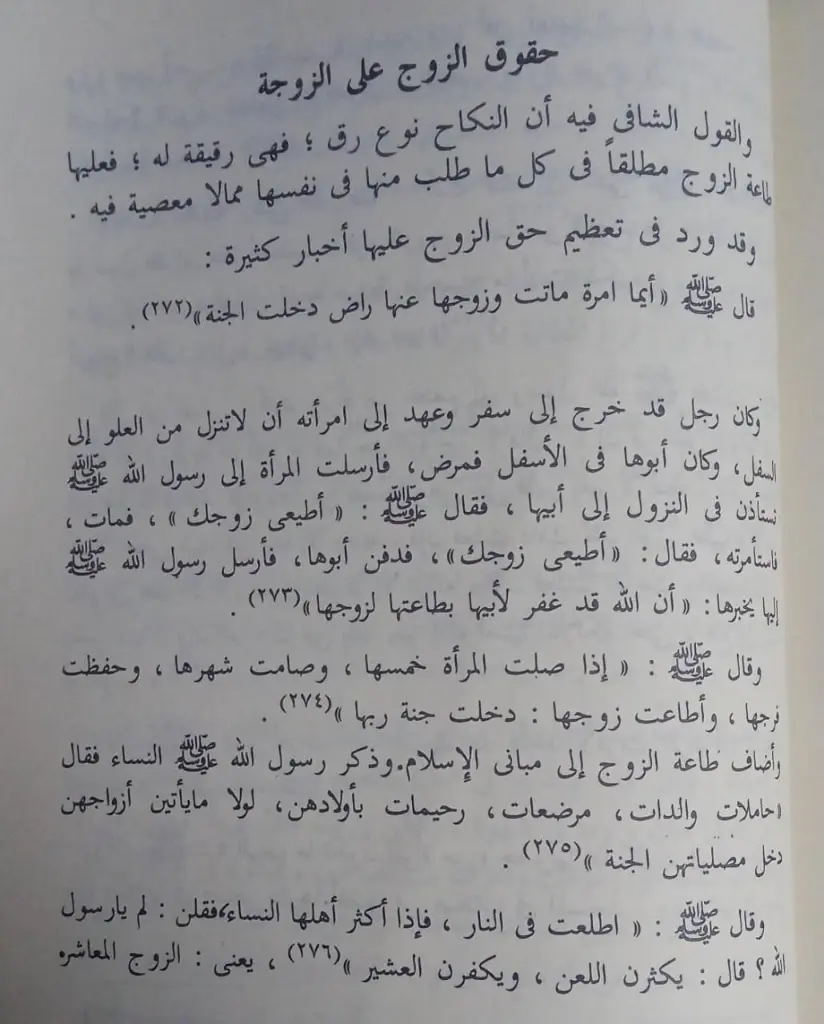 حقوق الزوج على الزوجة
والقول الشافى فيه أن النكاح نوع رق ؛ فهى رقيقة له ؛ فعليها
طاعة الزوج مطلقاً فى كل ما طلب منها فى نفسها ممالا معصية فيه .
وقد ورد فى تعظيم حق الزوج عليها أخبار كثيرة :
قال ﷺ « أيما امرة ماتت وزوجها عنها راض دخلت الجنة »(٢٧٢) .
وكان رجل قد خرج إلى سفر وعهد إلى امرأته أن لاتنزل من العلو إلى
السفل ، وكان أبوها فى الأسفل فمرض ، فأرسلت المرأة إلى رسول الله ﷺ
تستأذن فى النزول إلى أبيها ، فقال ﷺ : « أطيعى زوجك » ، فمات ،
فاستأمرته ، فقال : « أطيعى زوجك » ، فدفن أبوها ، فأرسل رسول الله ﷺ
إليها يخبرها : « أن الله قد غفر لأبيها بطاعتها لزوجها »(٢٧٣) .
وقال ﷺ : « إذا صلت المرأة خمسها ، وصامت شهرها ، وحفظت
فرجها ، وأطاعت زوجها : دخلت جنة ربها »(٢٧٤) .
وأضاف طاعة الزوج إلى مبانى الإسلام.وذكر رسول الله ﷺ النساء فقال
«حاملات والدات ، مرضعات ، رحيمات بأولادهن ، لولا مايأتين أزواجهن
دخل مصلياتهن الجنة »(٢٧٥) .
وقال ﷺ : « اطلعت فى النار ، فإذا أكثر أهلها النساء ، فقلن : لم يارسول
الله ؟ قال : يكثرن اللعن ، ويكفرن العشير »(٢٧٦) ، يعنى : الزوج المعاشره